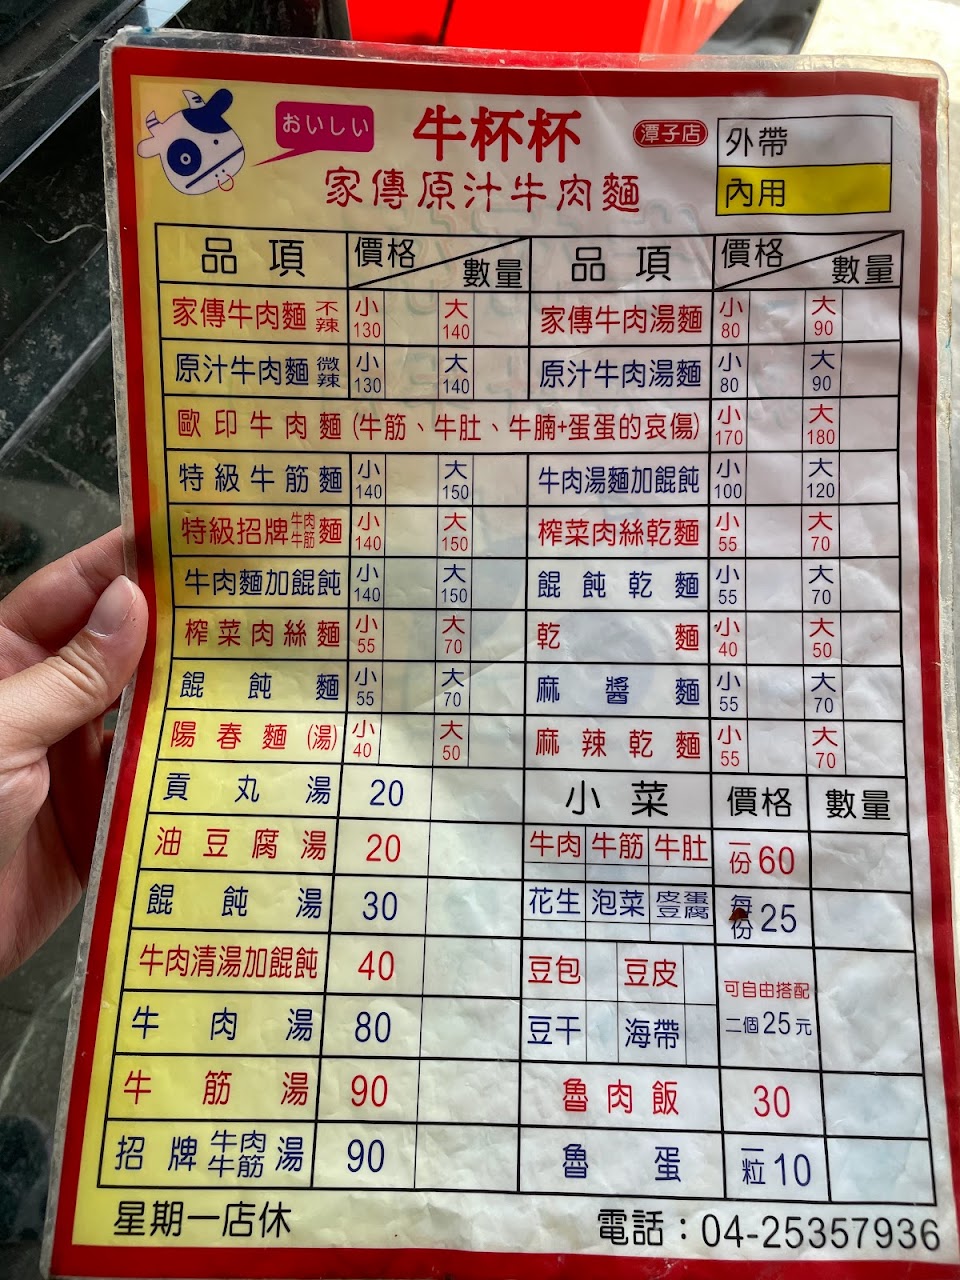 おいしい
牛杯杯
潭子店
家傳原汁牛肉麵
外帶
內用
品項 價格 數量 品項 價格 數量
家傳牛肉麵 不辣 小130 大140 家傳牛肉湯麵 小80 大90
原汁牛肉麵 微辣 小130 大140 原汁牛肉湯麵 小80 大90
歐印牛肉麵(牛筋、牛肚、牛腩+蛋蛋的哀傷) 小170 大180
特級牛筋麵 小140 大150 牛肉湯麵加餛飩 小100 大120
特級招牌牛肉牛筋麵 小140 大150 榨菜肉絲乾麵 小55 大70
牛肉麵加餛飩 小140 大150 餛飩乾麵 小55 大70
榨菜肉絲麵 小55 大70 乾麵 小40 大50
餛飩麵 小55 大70 麻醬麵 小55 大70
陽春麵(湯) 小40 大50 麻辣乾麵 小55 大70
貢丸湯 20 小菜 價格 數量
油豆腐湯 20 牛肉 牛筋 牛肚 一份60
餛飩湯 30 花生 泡菜 皮蛋豆腐 每份25
牛肉清湯加餛飩 40 豆包 豆皮 可自由搭配
牛肉湯 80 豆干 海帶 二個25元
牛筋湯 90 魯肉飯 30
招牌牛肉牛筋湯 90 魯蛋 一粒10
星期一店休 電話：04-25357936